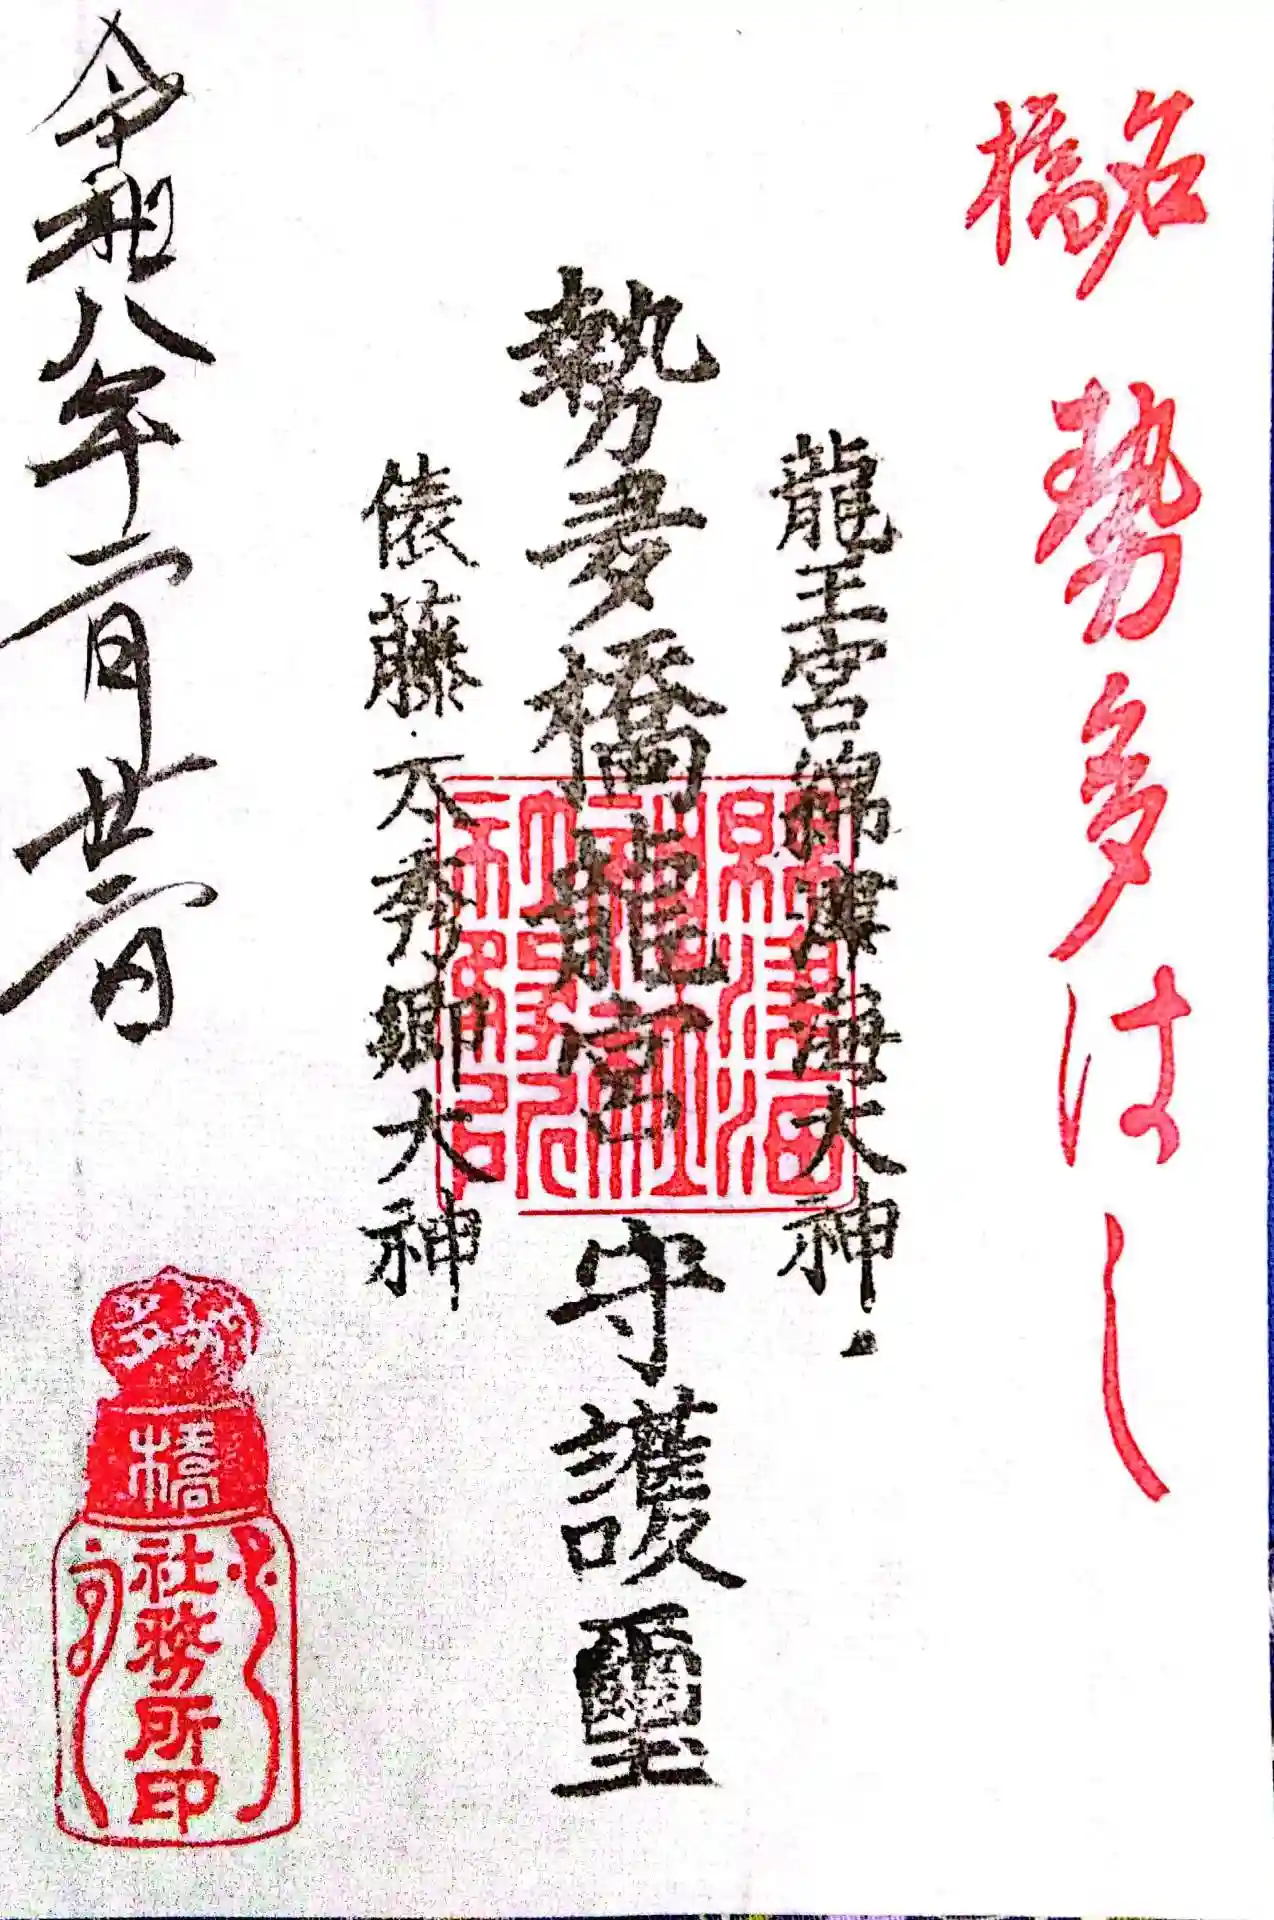 名橋 勢多はし
龍王宮綿津海大神
勢多橋龍宮 守護璽
俵藤太秀郷大神
令和八年二月廿二日
綿津海
神社
社務所印
橋
社務所印